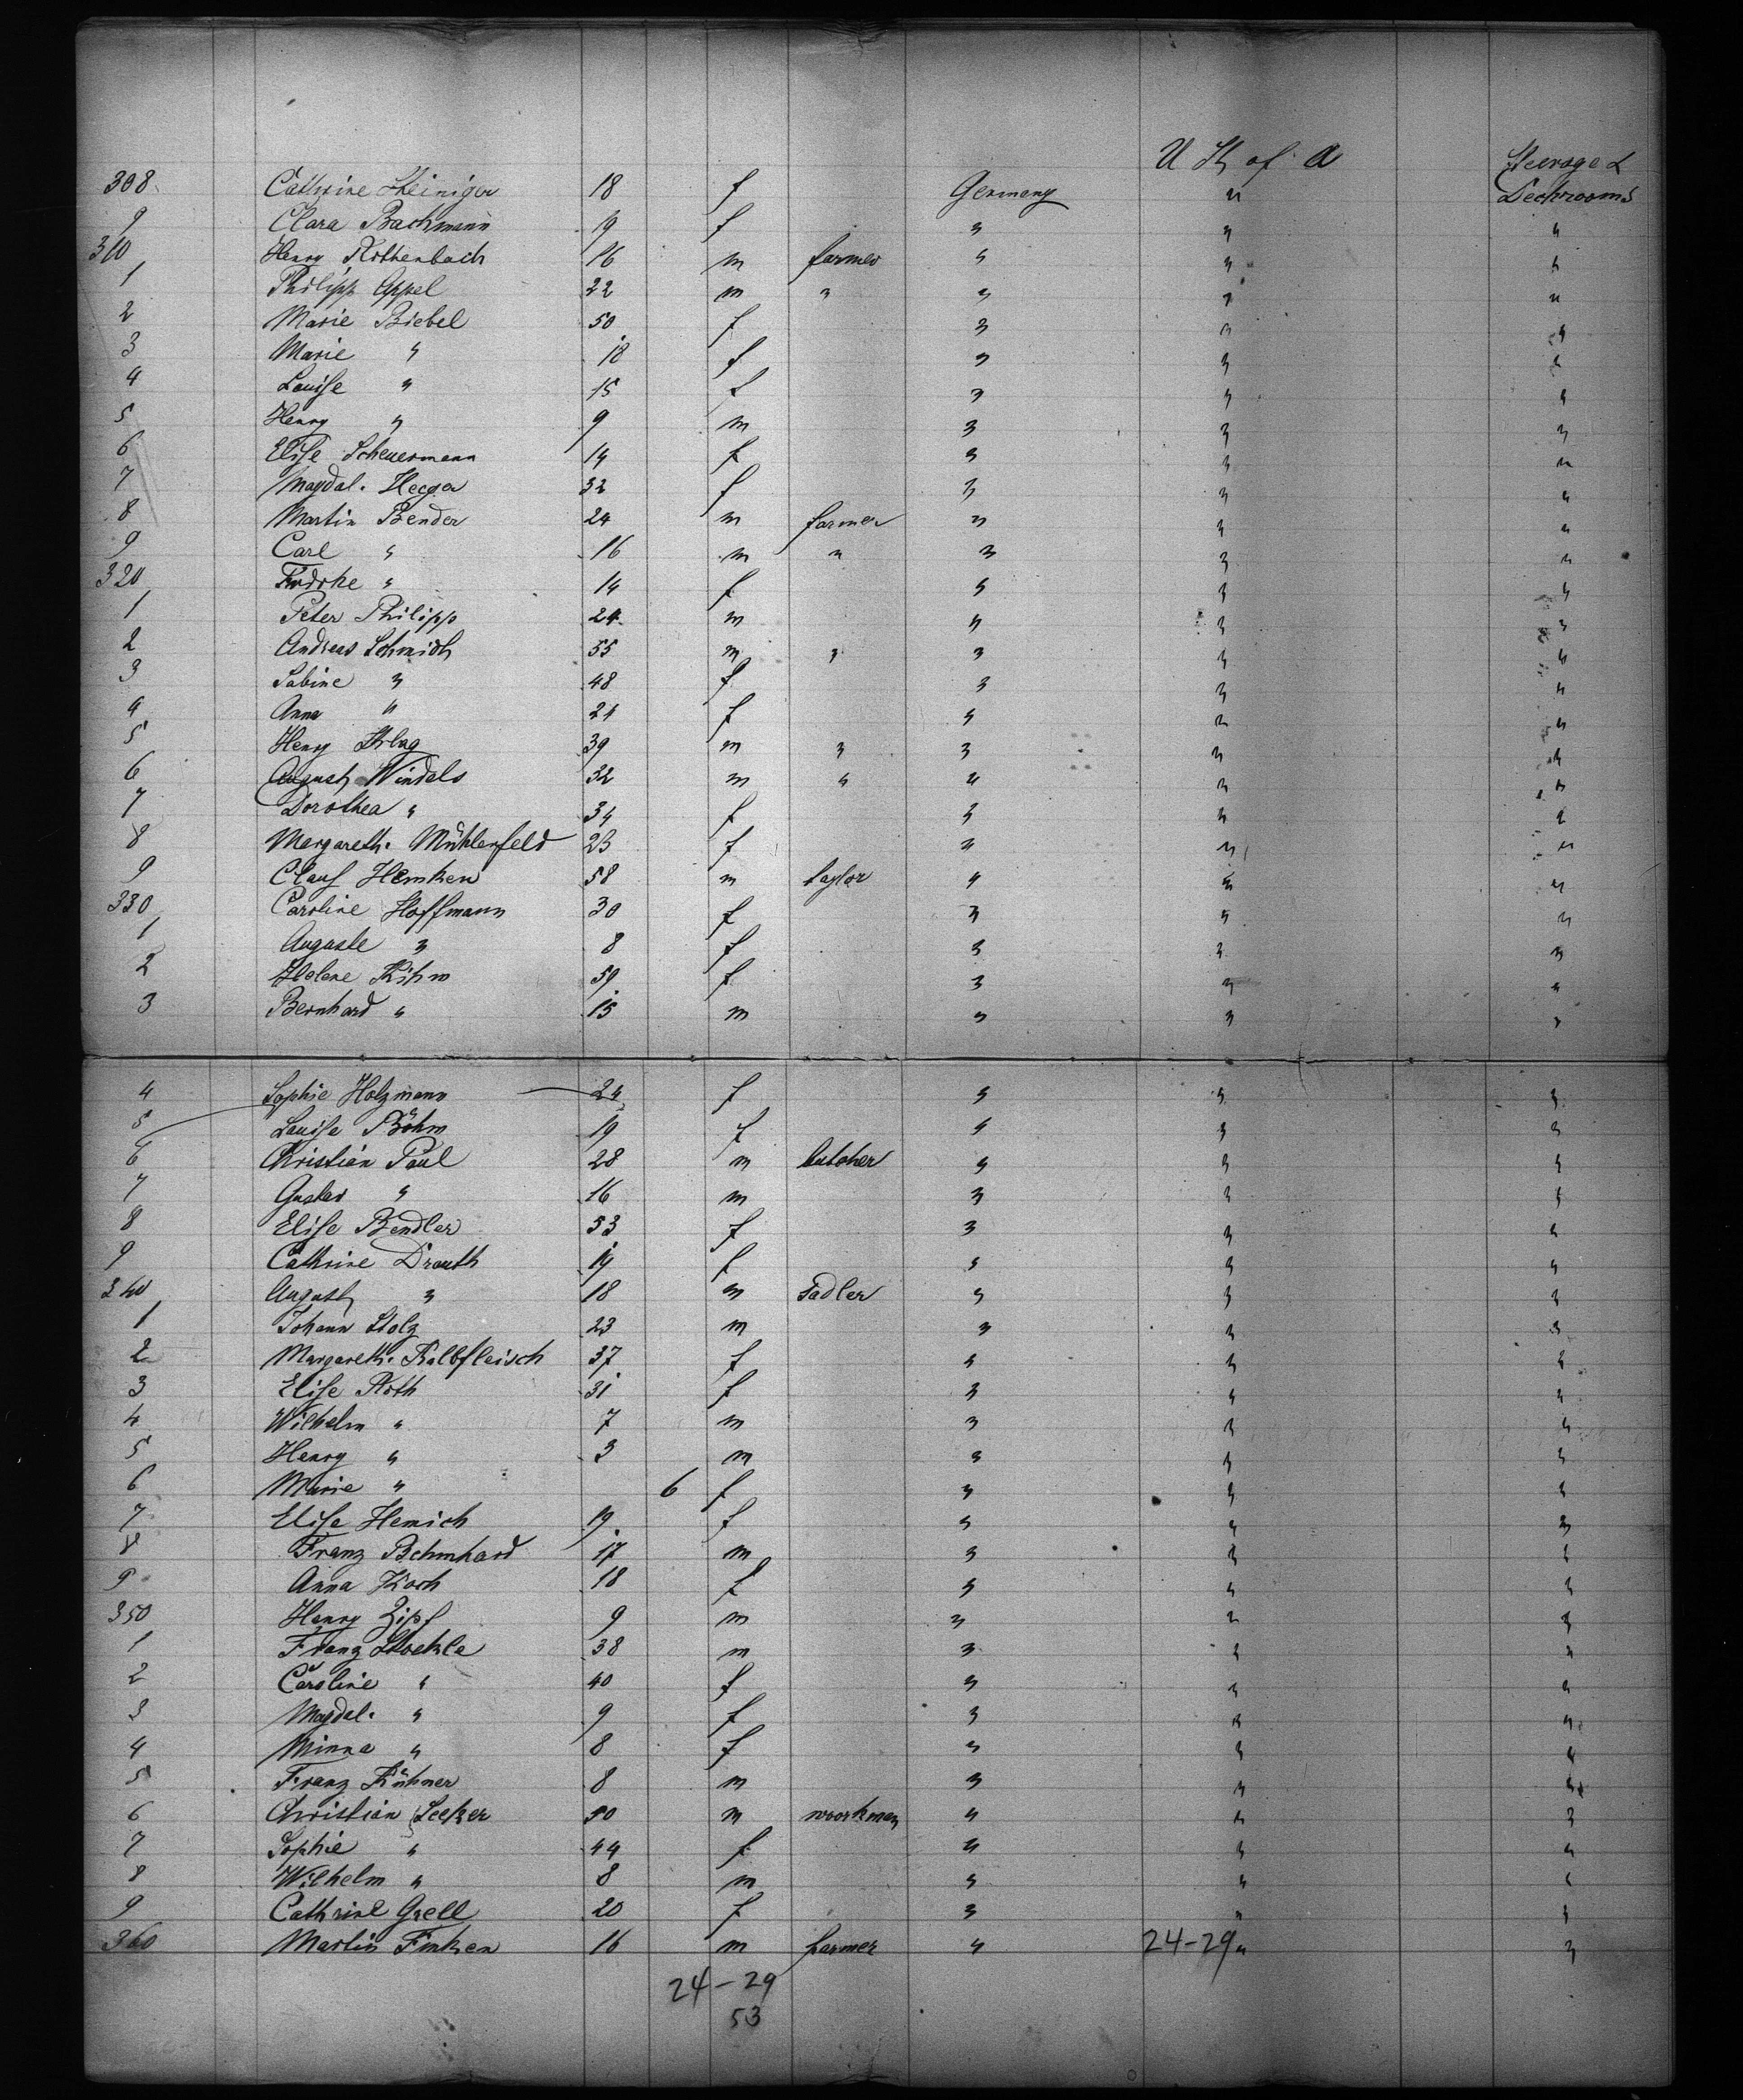 U St of A Steerage &
308 Cathrine Steiniger 18 f Germany " Deckrooms
9 Clara Bachmann 19 f " " "
310 Henry Rothenbach 16 m farmer " " "
1 Philipp Appel 22 m " " " "
2 Marie Biebel 50 f " " "
3 Marie " 18 f " " "
4 Louise " 15 f " " "
5 Henry " 9 m " " "
6 Elise Scheuermann 14 f " " "
7 Magdal. 32 f " " "
8 Martin Bender 24 m farmer " " "
9 Carl " 16 m " " " "
320 " 14 f " " "
1 Peter Philipp 24 m " " "
2 Andreas Schmidt 55 m " " " "
3 Sabine " 48 f " " "
4 Anna " 21 f " " "
5 Henry 39 m " " " "
6 August Windels 32 m " " " "
7 Dorothea " 34 f " " "
8 Margareth. Mühlenfeld 23 f " " "
9 Claus Hemken 58 m taylor " " "
330 Caroline Hoffmann 30 f " " "
1 Auguste " 8 f " " "
2 Helene 59 f " " "
3 Bernhard " 15 m " " "
4 Sophie Holzmann 24 f " " "
5 Louise Böhm 19 f " " "
6 Christian Paul 28 m butcher " " "
7 Gustav " 16 m " " "
8 Elise Bendler 53 f " " "
9 Cathrine Drauth 19 f " " "
340 August " 18 m Sadler " " "
1 Johann Stolz 23 m " " "
2 Margareth. Kalbfleisch 37 f " " "
3 Elise Roth 31 f " " "
4 Wilhelm " 7 m " " "
5 Henry " 3 m " " "
6 Marie " 6 f " " "
7 Elise Hemich 19 f " " "
8 Franz 17 m " " "
9 Anna Koch 18 f " " "
350 Henry Zipf 9 m " " "
1 Franz 38 m " " "
2 Caroline " 40 f " " "
3 Magdal. " 9 f " " "
4 Minna " 8 f " " "
5 Franz Kühner 8 m " " "
6 Christian Seeker 50 m woorkman " " "
7 Sophie " 44 f " " "
8 Wilhelm " 8 m " " "
9 Cathrine Grell 20 f " " "
360 Martin Finken 16 m farmer " 24-29 " "
24-29
53